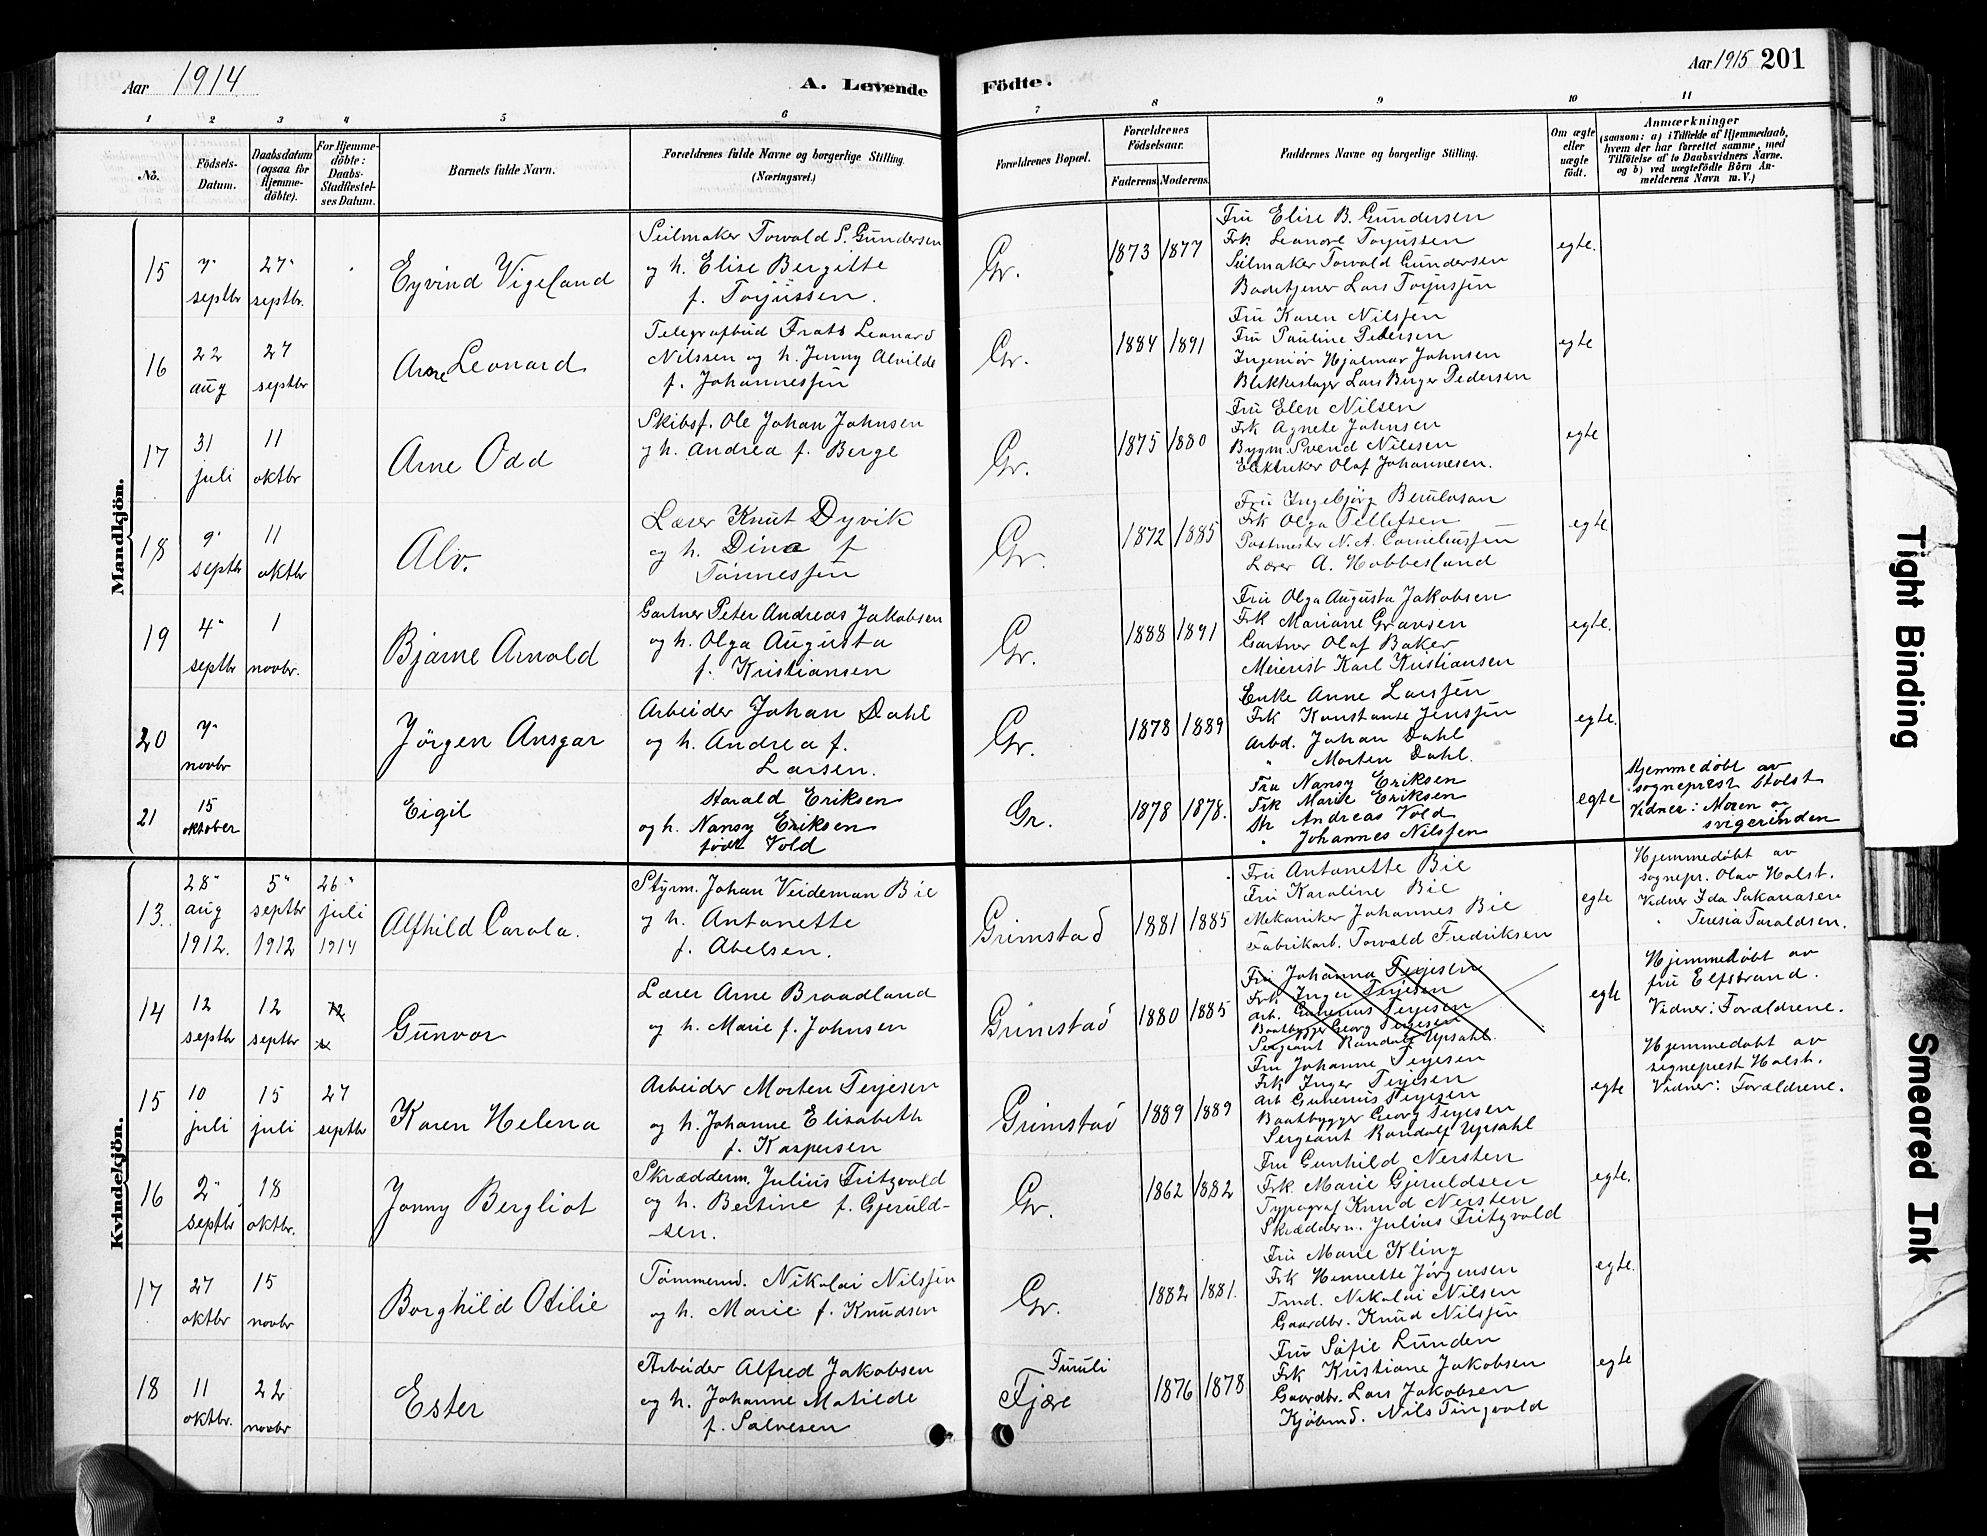 Aar 1914
A. Levende
Födte.
Aar 1915 201
1 2 3 4 5 6 7 8 9 10 11
No.
Födsels-Datum.
Daabsdatum (ogsaa for Hjemme-döbte).
For Hjemme-döbte: Daabs-Stadfæstel-ses Datum.
Barnets fulde Navn.
Forældrenes fulde Navne og borgerlige Stilling.
(Næringsvei.)
Forældrenes Bopæl.
Forældrenes Födselsaar.
Faderens. Moderens.
Faddernes Navne og borgerlige Stilling.
Om ægte eller uægte födt.
Anmærkninger
(saasom: a) i Tilfælde af Hjemmedaab, hvem der har forrettet samme, med Tilföielse af to Daabsvidners Navne. og b) ved uægtefödte Börn An-melderens Navn m. V.)
Mandkjön.
15
7. septbr
27. septbr.
Eyvind Vigeland
Seilmaker Torvald S. Gundersen
og h. Elise Bergitte
f. Torjussen.
Gr.
1873 1877
Fru Elise B. Gundersen
Frk Leonore Torjussen
Seilmaker Torvald Gundersen
Badetjener Lars Torjussen
egte.
16
22 aug
27 septbr
Arne Leonard
Telegrafbud Frats Leonard
Nilssen og h. Jenny Alvilde
f. Johannessen
Gr.
1884 1891
Fru Karen Nilssen
Fru Pauline Pedersen
Ingeniör Hjalmar Johnsen
Blikkeslager Lars Birger Pedersen
egte
17
31 juli
11 oktbr
Arne Odd
Skibsf. Ole Johan Johnsen
og h. Andrea f. Berge
Gr.
1875 1880
Fru Elen Nilsen
Frk Agnete Johnsen
Bygm. Svend Nilssen
Elektriker Olaf Johannesen.
egte
18
9. septbr
11 oktbr
Alv.
Lærer Knut Dyvik
og h. Dina f
Tönnessen
Gr.
1872 1885
Fru Ingebjörg
Frk Olga Tellefsen
Postmester N. A. Corneliussen
Lærer A. Hobbesland
egte
19
4. septbr
1 novbr.
Bjarne Arnold
Gartner Peter Andreas Jakobsen
og h. Olga Augusta
f. Kristiansen
Gr.
1888 1891
Fru Olga Augusta Jakobsen
Frk Mariane Gravsen
Gartner Olaf Baker
Meierist Karl Kristiansen
egte.
20
7. novbr
Jörgen Ansgar
Arbeider Johan Dahl
og h. Andrea f.
Larsen.
Gr.
1878 1889
Enke Anne Larssen
Frk Konstanse Jenssen
Arbd. Johan Dahl
" Morten Dahl.
egte.
21
15 oktober
Eigil
Harald Eriksen
og h. Nansy Eriksen
födt Vold
Gr.
1878 1878.
Fru Nansy Eriksen
Frk Marie Eriksen
Hr Andreas Vold
" Johannes Nilssen
egte
Hjemmedöbt av
sogneprest Holst
Vidner: Moren og
svigerinden
Kvindekjön.
13
28. aug 1912.
5. septbr 1912
26. juli 1914
Alfhild Carola.
Styrm. Johan Veideman Bie
og h. Antonette
f. Abelsen.
Grimstad
1881 1885
Fru Antonette Bie
Fru Karoline Bie
Mekaniker Johannes Bie
Fabrikarb. Torvald Fredriksen
egte
Hjemmedöbt av
sognepr. Olav Holst.
Vidner Ida Sakariasen
" Teresia Taraldsen.
14
12 septbr
12 septbr
12
Gunvor
Lærer Arne Braadland
og h. Marie f. Johnsen
Grimstad
1880 1885
Fru Johanna Terjesen
Frk. Inger Terjesen
Arb. Gunerius Terjesen
Baatbygger Georg Terjesen
Sergeant Randolf Upsahl.
egte
Hjemmedöbt av
fru Elfstrand.
Vidner: Forældrene.
15
10 juli
15 juli
27 septbr
Karen Helena
Arbeider Morten Terjesen
og h. Johanne Elisabeth
f. Kaspersen
Grimstad
1889 1889
Fru Johanne Terjesen
Frk Inger Terjesen
Arb Gunerius Terjesen
Baatbygger Georg Terjesen
Sergeant Randolf Upsahl
egte
Hjemmedöbt av
sogneprest Holst.
Vidner: Forældrene.
16
2. septbr
18 oktbr.
Jonny Bergliot
Skrædderm. Julius Fritzvold
og h. Bertine f. Gjeruld-
sen.
Gr.
1862 1882
Fru Gunhild Nersten
Frk. Marie Gjeruldsen
Typograf Knud Nersten
Skrædderm. Julius Fritzvold
egte.
17
27 oktbr
15 novbr
Borghild Otilie
Tömmermd. Nikolai Nilssen
og h. Marie f. Knudsen
Gr.
1882 1881.
Fru Marie Kling
Frk Henriette Jörgensen
Tmd. Nikolai Nilsen
Gaardbr. Knud Nilssen
egte.
18
11 oktbr.
22 novbr
Ester
Arbeider Alfred Jakobsen
og h. Johanne Matilde
f. Salvesen
Furuli
Fjære
1876 1878
Fru Sofie Lunden
Frk Kristiane Jakobsen
Gaardbr. Lars Jakobsen
Kjöbmd. Nils Tingvold
egte
Tight Binding
Smeared Ink